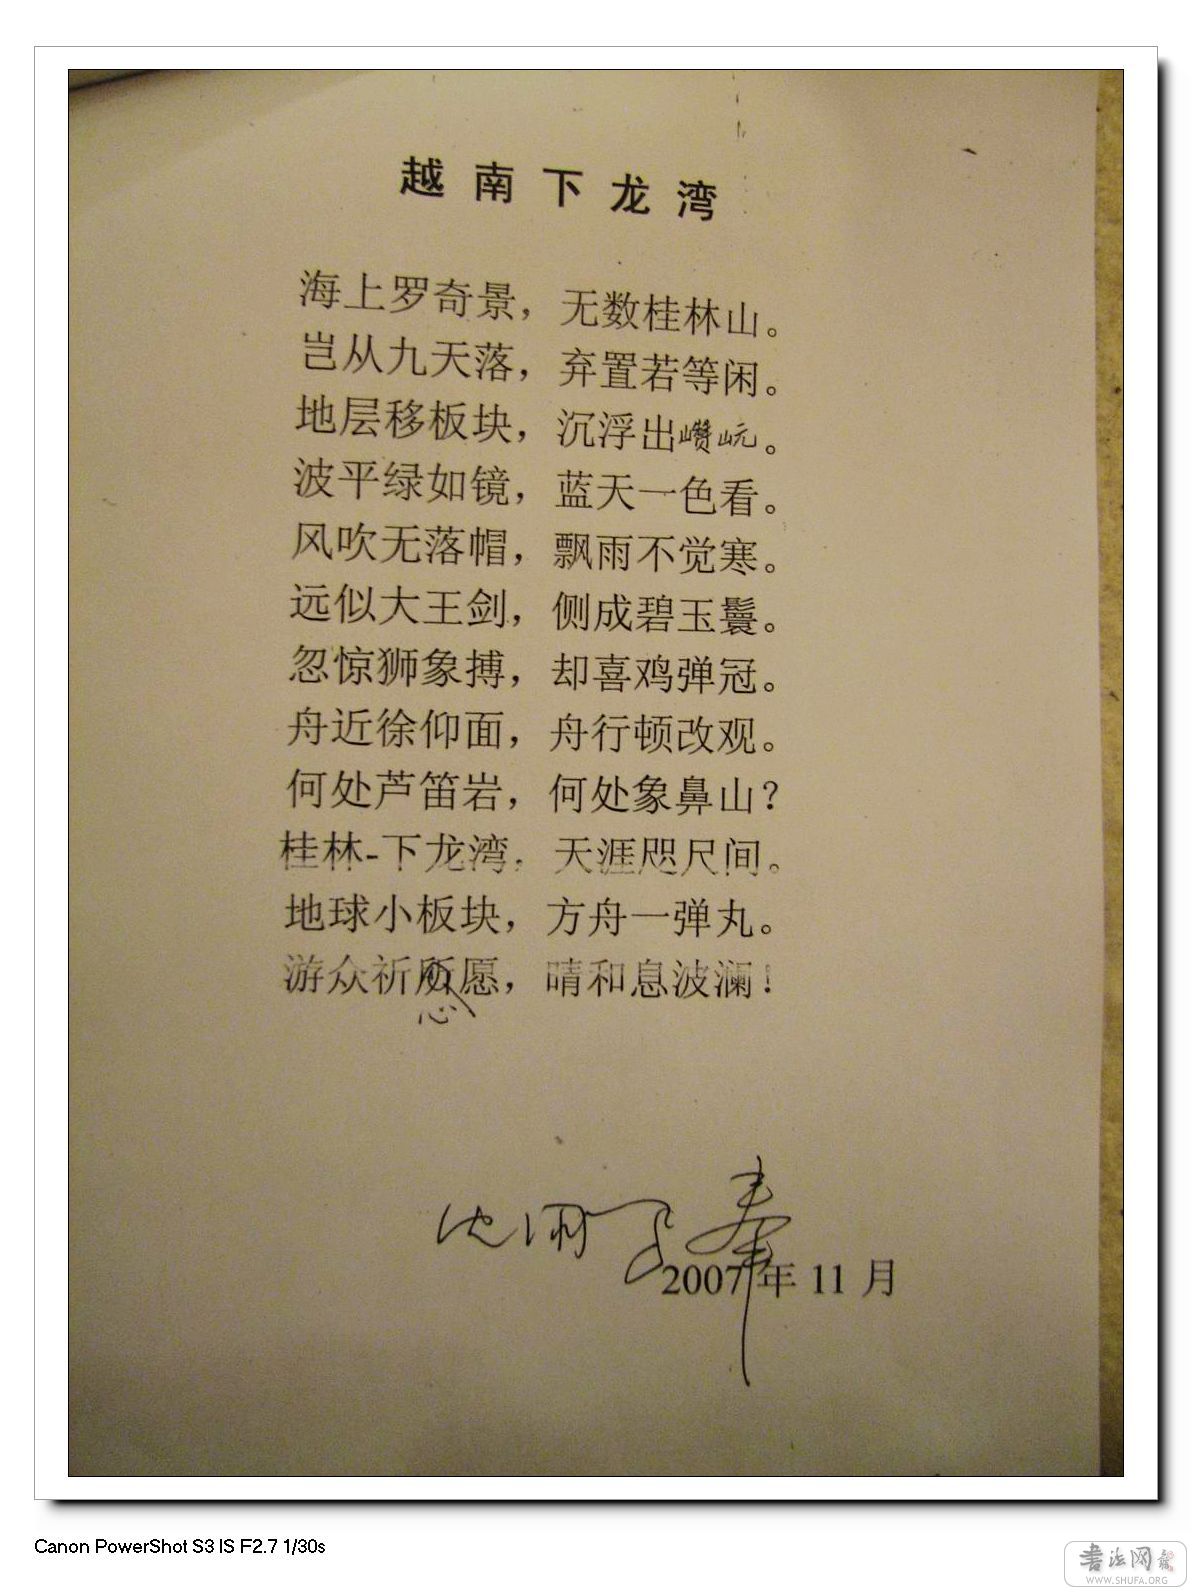 越南下龙湾
海上罗奇景，无数桂林山。
岂从九天落，弃置若等闲。
地层移板块，沉浮出巑岏。
波平绿如镜，蓝天一色看。
风吹无落帽，飘雨不觉寒。
远似大王剑，侧成碧玉鬟。
忽惊狮象搏，却喜鸡弹冠。
舟近徐仰面，舟行顿改观。
何处芦笛岩，何处象鼻山？
桂林-下龙湾，天涯咫尺间。
地球小板块，方舟一弹丸。
游众祈所愿，晴和息波澜！
心
2007年11月
Canon PowerShot S3 IS F2.7 1/30s
书法网
WWW.SHUFA.ORG